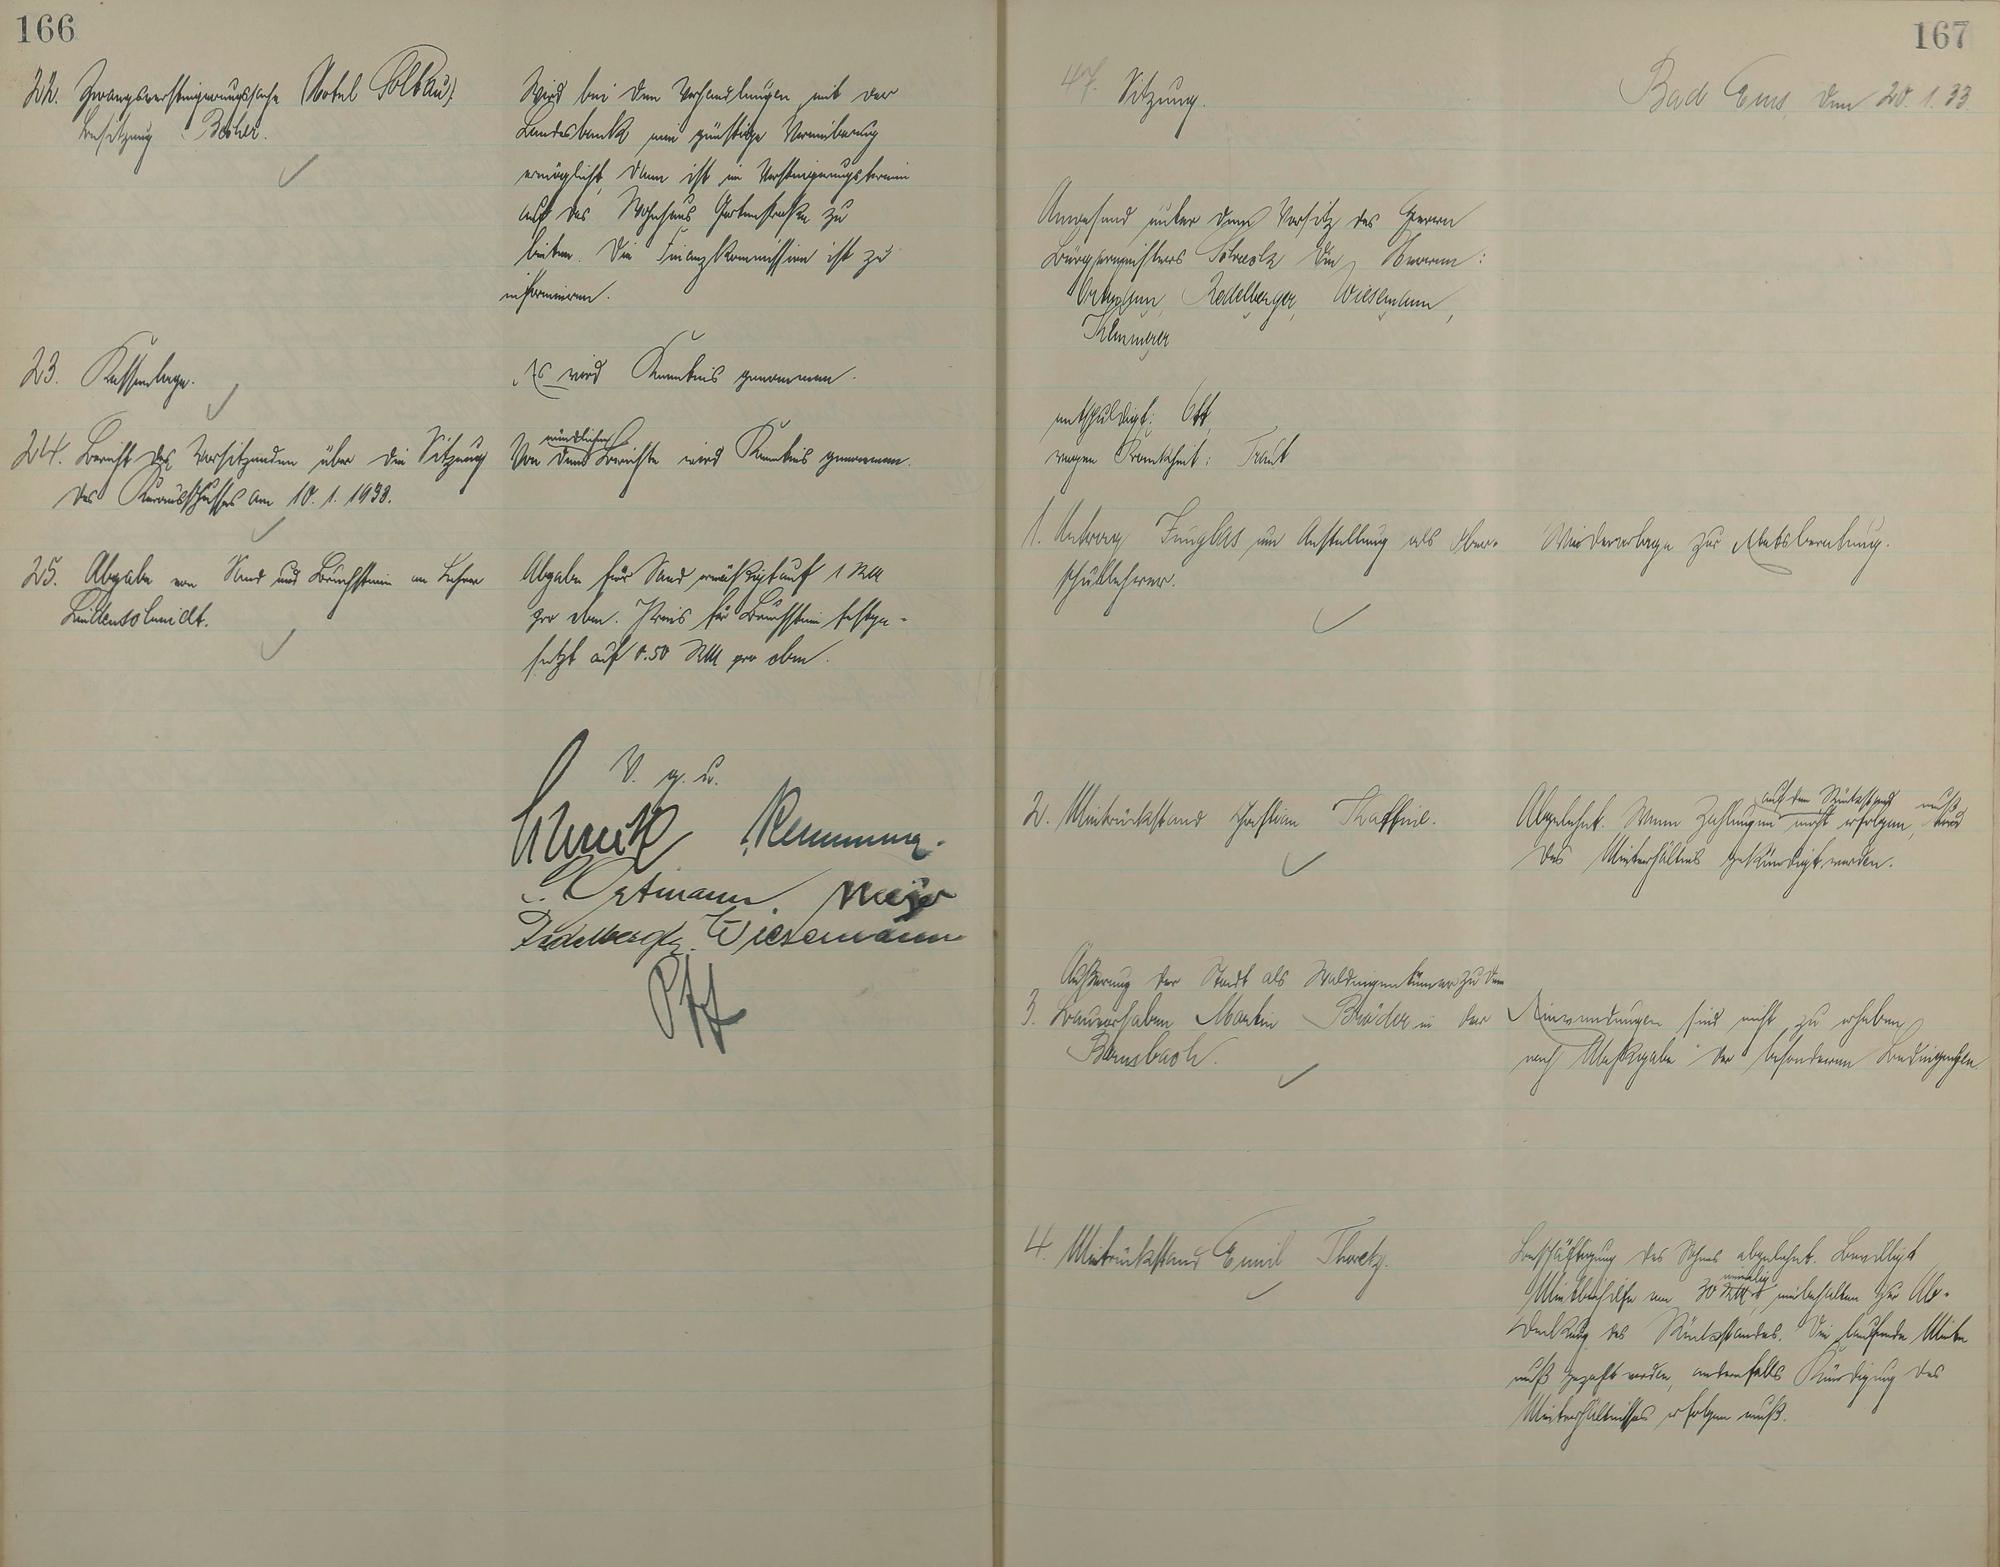 166
22. Zwangsversteigerungssache (Hotel Solbau).
Besitzung
Wird bei den Verhandlungen mit der
Landesbank eine günstige Vereinbarung
ermöglicht, dann ist im Versteigerungstermin
auf das Wohnhaus Gartenstraße zu
bieten. Die Finanzkommission ist zu
informieren.
23. Kassenlage.
Es wird Kenntnis genommen.
24. Bericht des Vorsitzenden über die Sitzung
des Kurausschusses am 10. 1. 1933.
mündlichen
Von dem Berichte wird Kenntnis genommen.
25. Abgabe von Sand und Bruchstein an Lehrer
Lindenschmidt.
Abgabe für Sand ermäßigt auf 1 RM
pro cbm. Preis für Bruchstein festge-
setzt auf 0.50 RM pro cbm.
V. g. u.
Schreck Klemmerer
Ortmann Meyer
Redelberger Wiesemann
Ott
167
47. Sitzung.
Bad Ems, den 20. 1. 33.
Anwesend unter dem Vorsitz des Herrn
Bürgermeisters Schreck die Herren:
Redelberger, Wiesemann,
Klemmerer
entschuldigt: Ott,
wegen Krankheit: Traut
1. Antrag Junglas um Anstellung als Ober-
schullehrer.
Wiedervorlage zur Etatsberatung.
2. Mietrückstand Christian
auf den Rückstand muß
Abgelehnt. Wenn Zahlungen nicht erfolgen,
das Mietverhältnis gekündigt werden.
Äußerung der Stadt als Waldeigentümer zu dem
3. Bauvorhaben Martin Bröder in der
Braunsbach.
Einwendungen sind nicht zu erheben
nach Maßgabe der besonderen Bedingungen.
4. Mietrückstand Emil
Beschäftigung des Sohnes abgelehnt. Bewilligt
einmalig
Mietbeihilfe von 30 RM, einbehalten zur Ab-
deckung des Rückstandes. Die laufende Miete
muß gezahlt werden, andernfalls Kündigung des
Mietverhältnisses erfolgen muß.